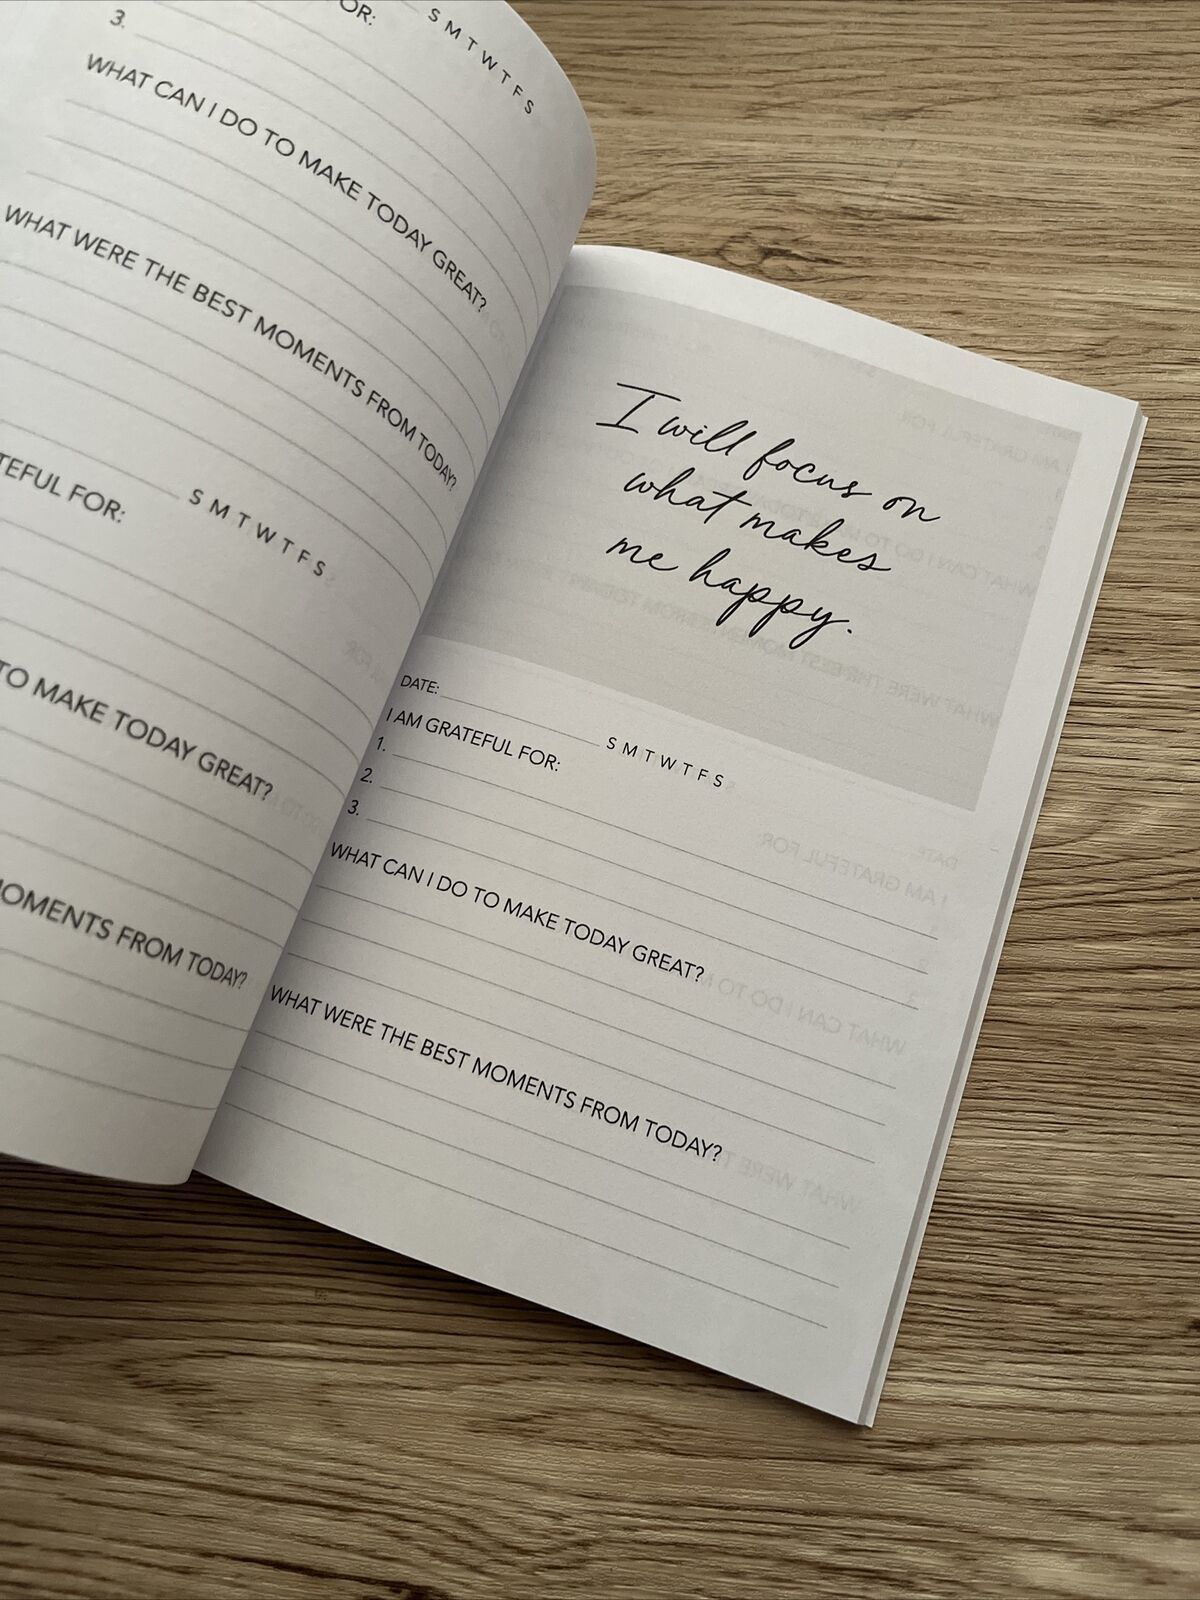 OR:
S M T W T F S
3.
WHAT CAN I DO TO MAKE TODAY GREAT?
WHAT WERE THE BEST MOMENTS FROM TODAY?
TEFUL FOR:
S M T W T F S
TO MAKE TODAY GREAT?
MOMENTS FROM TODAY?
I will focus on
what makes
me happy.
DATE:
S M T W T F S
I AM GRATEFUL FOR:
1.
2.
3.
WHAT CAN I DO TO MAKE TODAY GREAT?
WHAT WERE THE BEST MOMENTS FROM TODAY?